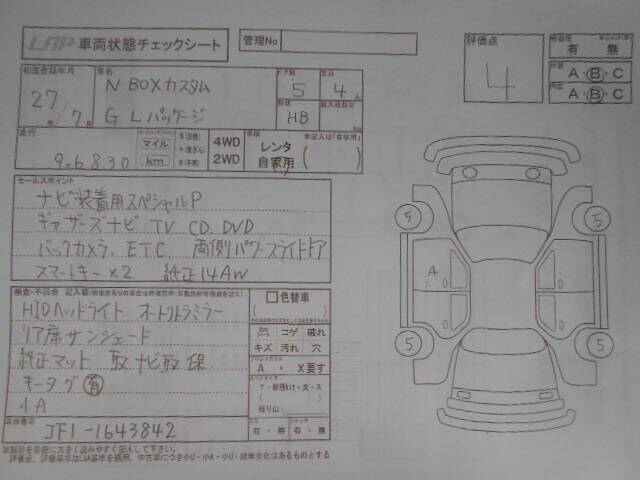 LAP 車両状態チェックシート
管理No
評価点
4
有 無
A・B・C
A・B・C
初度登録年月
27年/7月
車名
N BOXカスタム
G Lパッケージ
ドア数
5
定員
4人
形状
HB
最大積載量
kg
走行
96830
マイル
km
4WD
2WD
レンタ
自家用
( )
セールスポイント
ナビ装着用スペシャルP
ギャザーズナビ TV CD. DVD
バックカメラ. ETC. 両側パワースライドドア
スマートキー×2 純正14AW
検査・不具合 記入欄
HIDヘッドライト オートリトラミラー
リア席サンシェード
純正マット 取 ナビ取 保
キータグ 有
小A
色替車
コゲ 破れ
キズ 汚れ 穴
フロントガラス
A ・ X要す
残り山
有・無
有・無
車体番号
JF1-1643842
5
5
A
5
5